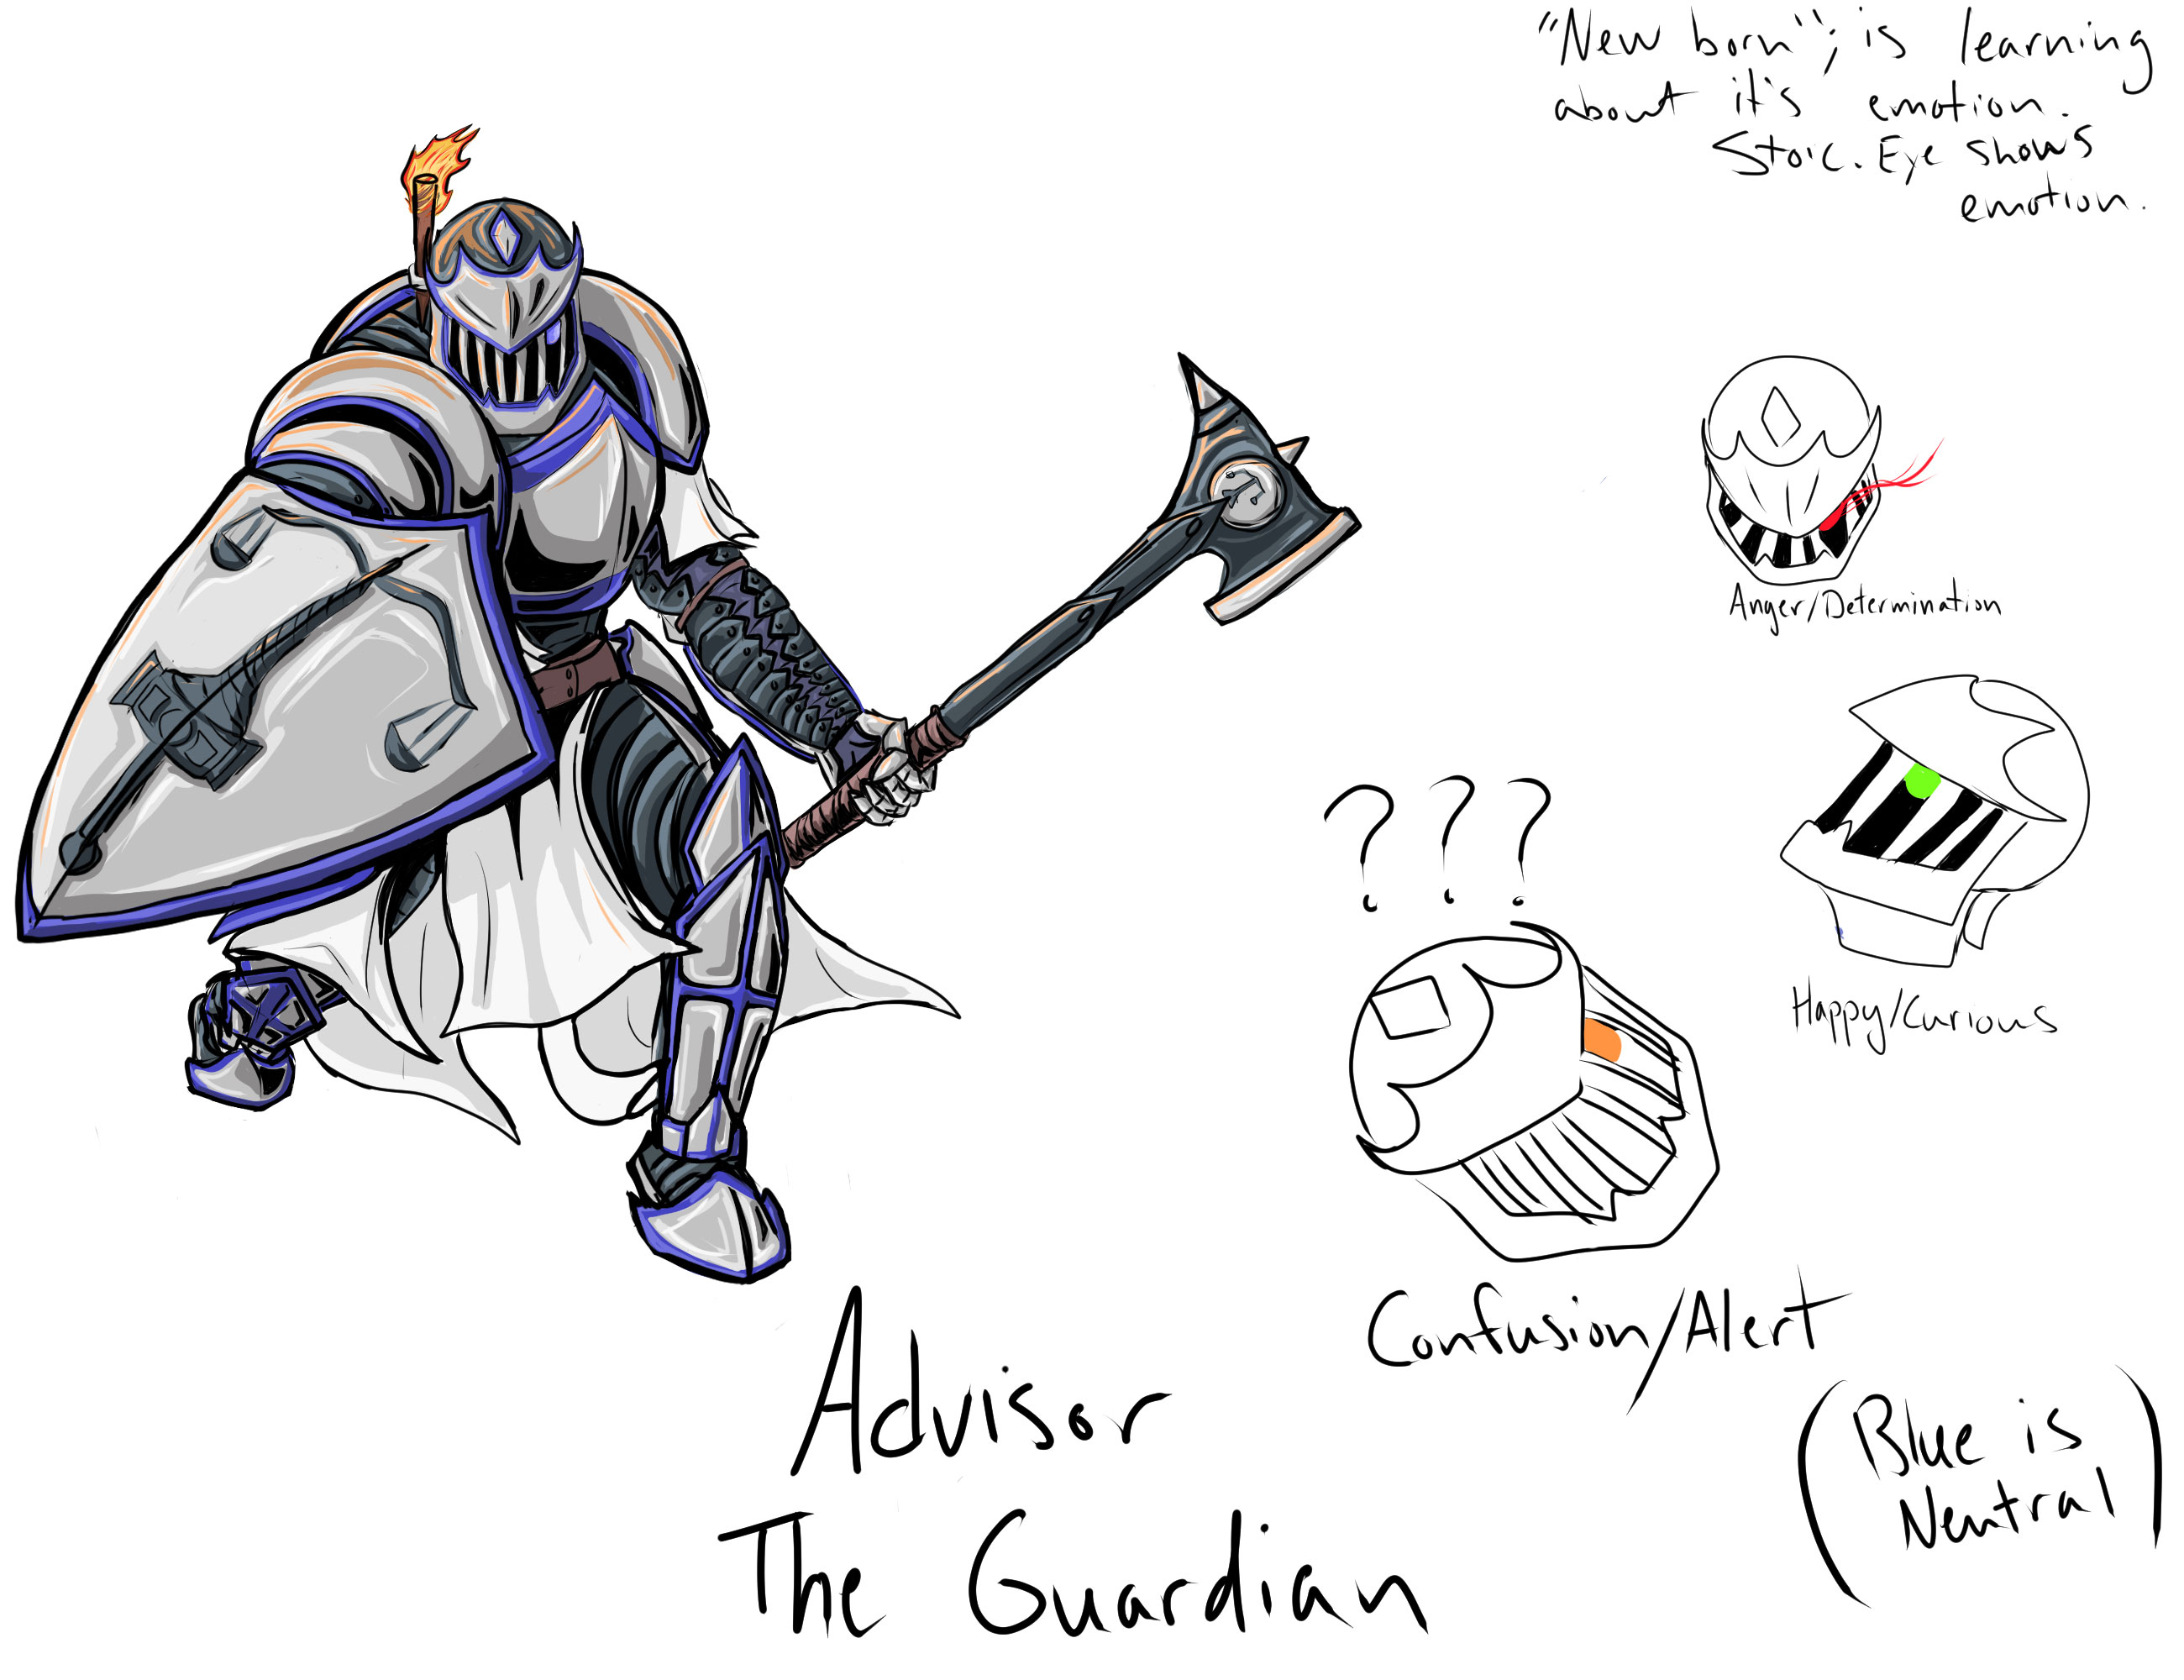 "New born"; is learning
about it's emotion.
Stoic. Eye shows
emotion.
Anger/Determination
Happy/Curious
? ? ?
Confusion/Alert
(Blue is
Neutral)
Advisor
The Guardian